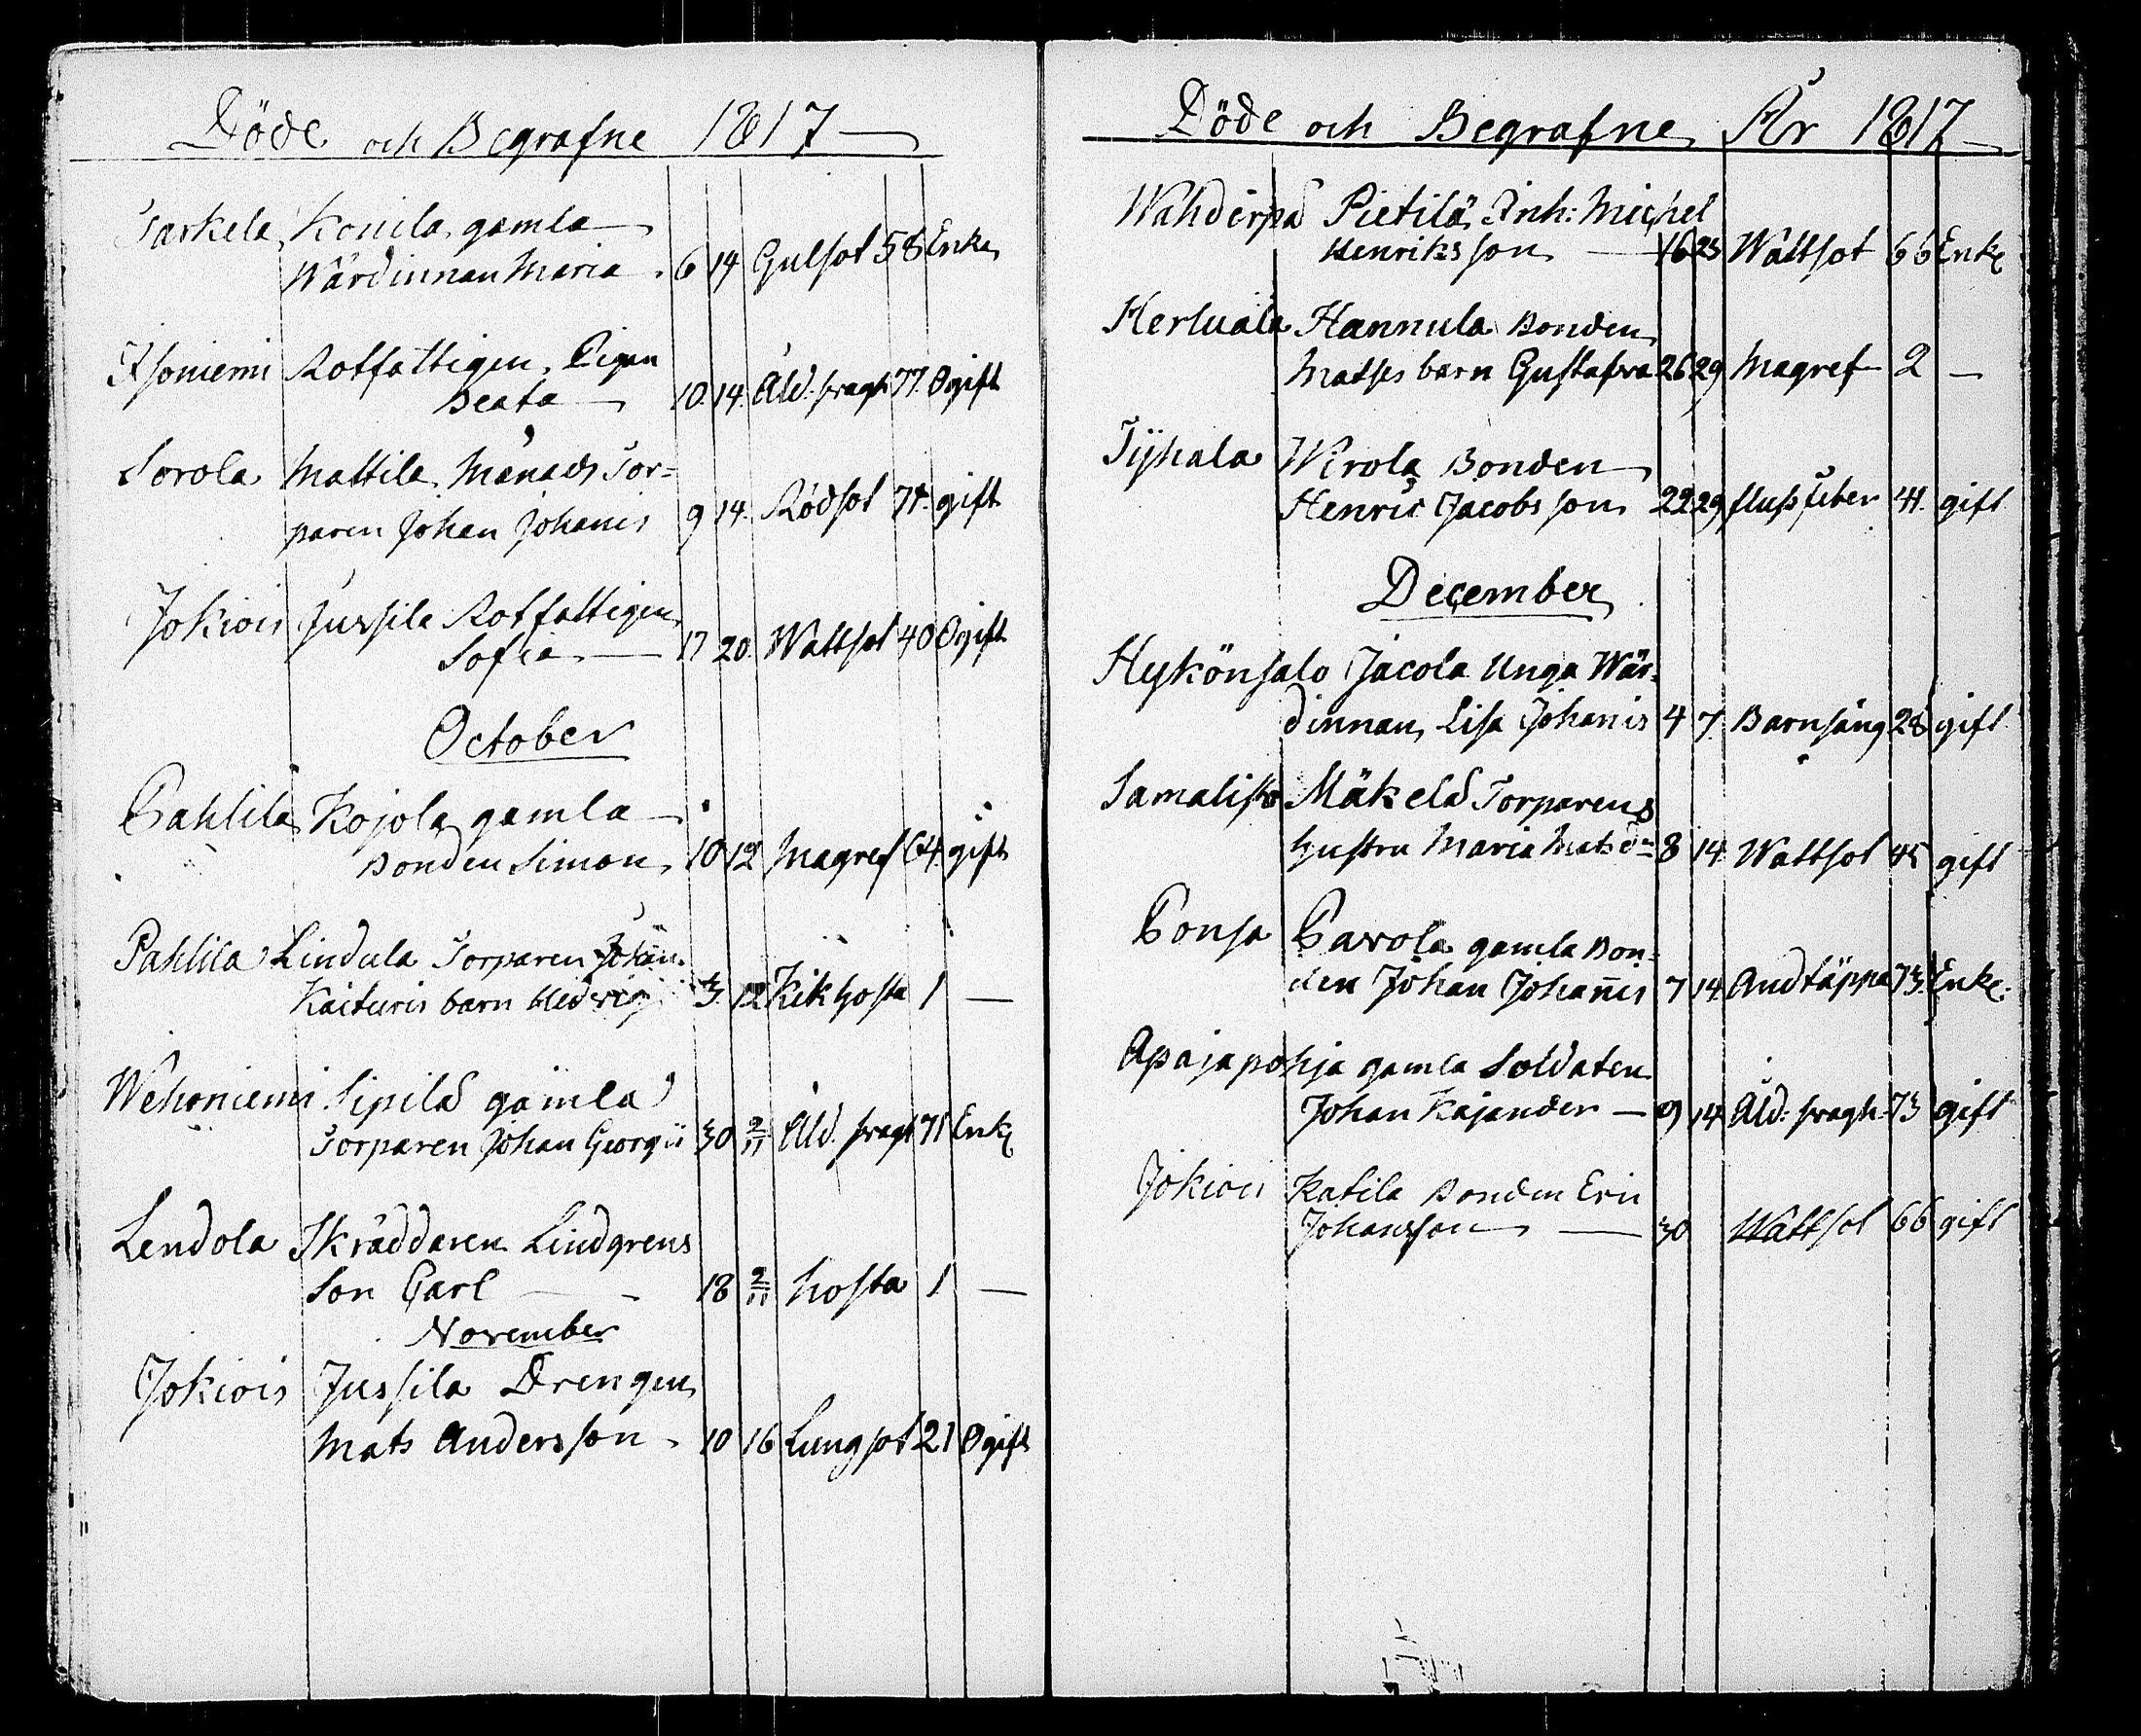 Döde och Begrafne 1817
Sarkela Konila gamla
Wärdinnan Maria 6 14 Gulsot 58 Enka
Isoniemi Rotfattigen, Pigan
Beata 10 14 Åld: bragh 77 Ogift
Sorola Mattila Månads Tor-
paren Johan Johanis 9 14 Rödsot 74 gift
Jokiois Jussila Rotfattigen
Sofia 17 20 Wattsot 40 Ogift
October
Pahlila Kojola gamla
Bonden Simon 10 12 Magref 64 gift
Pahlila Lindula Torparen Johan
Kaituris barn Hedvig 3 12 Kikhosta 1 —
Wehoniemi Sipilä gamla
Torparen Johan Georgii 30 2/11 Åld. bragh 71 Enk
Lendola Skräddaren Lindgrens
Son Carl 18 2/11 hosta 1 —
November
Jokiois Jussila Drengen
Mats Andersson 10 16 Lungsot 21 Ogift
Döde och Begrafne År 1817
Pietilä Inh: Michel
Henriksson 16 23 Wattsot 66 Enk
Hertuala Hannula Bonden
Matses barn Gustafva 26 29 Magref 2 —
Tyhala Wirola Bonden
Henric Jacobsson 22 29 fluss feber 41 gift
December
Hykönsalo Jacola Unga Wär-
dinnan Lisa Johanis 4 7 Barnsäng 28 gift
Samalisto Mäkelä Torparens
Hustru Maria Mats dr 8 14 Wattsot 45 gift
Ponsa Pavola gamla Bon-
den Johan Johannis 7 14 Andtäppa 73 Enk:
Apajapohja gamla Soldaten
Johan Kajander — 9 14 Åld: bragh 73 gift
Jokiois Katila Bonden Eric
Johansson — 30 Wattsot 66 gift